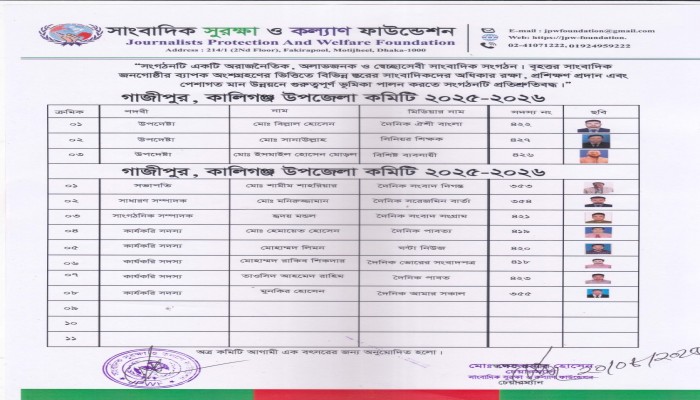 সাংবাদিক সুরক্ষা ও কল্যাণ ফাউন্ডেশন
Journalists Protection And Welfare Foundation
Address : 214/1 (2Nd Floor), Fakirapool, Motijheel, Dhaka-1000
E-mail : jpwfoundation@gmail.com
Web: https://jpw-foundation.
02-41071222, 01924959222
"সংগঠনটি একটি অরাজনৈতিক, অলাভজনক ও স্বেচ্ছাসেবী সাংবাদিক সংগঠন। বৃহত্তর সাংবাদিক
জনগোষ্ঠীর ব্যাপক অংশগ্রহণের ভিত্তিতে বিভিন্ন স্তরের সাংবাদিকদের অধিকার রক্ষা, প্রশিক্ষণ প্রদান এবং
পেশাগত মান উন্নয়নে গুরুত্বপূর্ণ ভূমিকা পালন করতে সংগঠনটি প্রতিশ্রুতিবদ্ধ।"
গাজীপুর, কালিগঞ্জ উপজেলা কমিটি ২০২৫-২০২৬
ক্রমিক পদবী নাম মিডিয়ার নাম সদস্য নং ছবি
০১ উপদেষ্টা মোঃ বিল্লাল হোসেন দৈনিক ঐশী বাংলা ৪২২
০২ উপদেষ্টা মোঃ সানাউল্লাহ সিনিয়র শিক্ষক ৪২৭
০৩ উপদেষ্টা মোঃ ইসমাইল হোসেন মোড়ল বিশিষ্ট ব্যবসায়ী ৪২৬
গাজীপুর, কালিগঞ্জ উপজেলা কমিটি ২০২৫-২০২৬
০১ সভাপতি মোঃ শামীম শাহরিয়ার দৈনিক সংবাদ দিগন্ত ৩৫৩
০২ সাধারণ সম্পাদক মোঃ মনিরুজ্জামান দৈনিক সরেজমিন বার্তা ৩৫৪
০৩ সাংগঠনিক সম্পাদক হৃদয় মন্ডল দৈনিক সংবাদ সংগ্রাম ৪২১
০৪ কার্যকরি সদস্য মোঃ হেমায়েত হোসেন দৈনিক পাবত্য ৪১৯
০৫ কার্যকরি সদস্য মোহাম্মদ লিমন ঘণ্টা নিউজ ৪২০
০৬ কার্যকরি সদস্য মোহাম্মদ রাকিব শিকদার দৈনিক ভোরের সংবাদপত্র ৪১৮
০৭ কার্যকরি সদস্য তাওসিন আহমেদ রাহিম দৈনিক পাবত ৪২৩
০৮ কার্যকরি সদস্য মুনকির হোসেন দৈনিক আমার সকাল ৩৫৫
০৯
১০
১১
অত্র কমিটি আগামী এক বৎসরের জন্য অনুমোদিত হলো।
হোসেন
চেয়ারম্যান
সাংবাদিক সুরক্ষা ও কল্যাণ ফাউন্ডেশন
চেয়ারম্যান